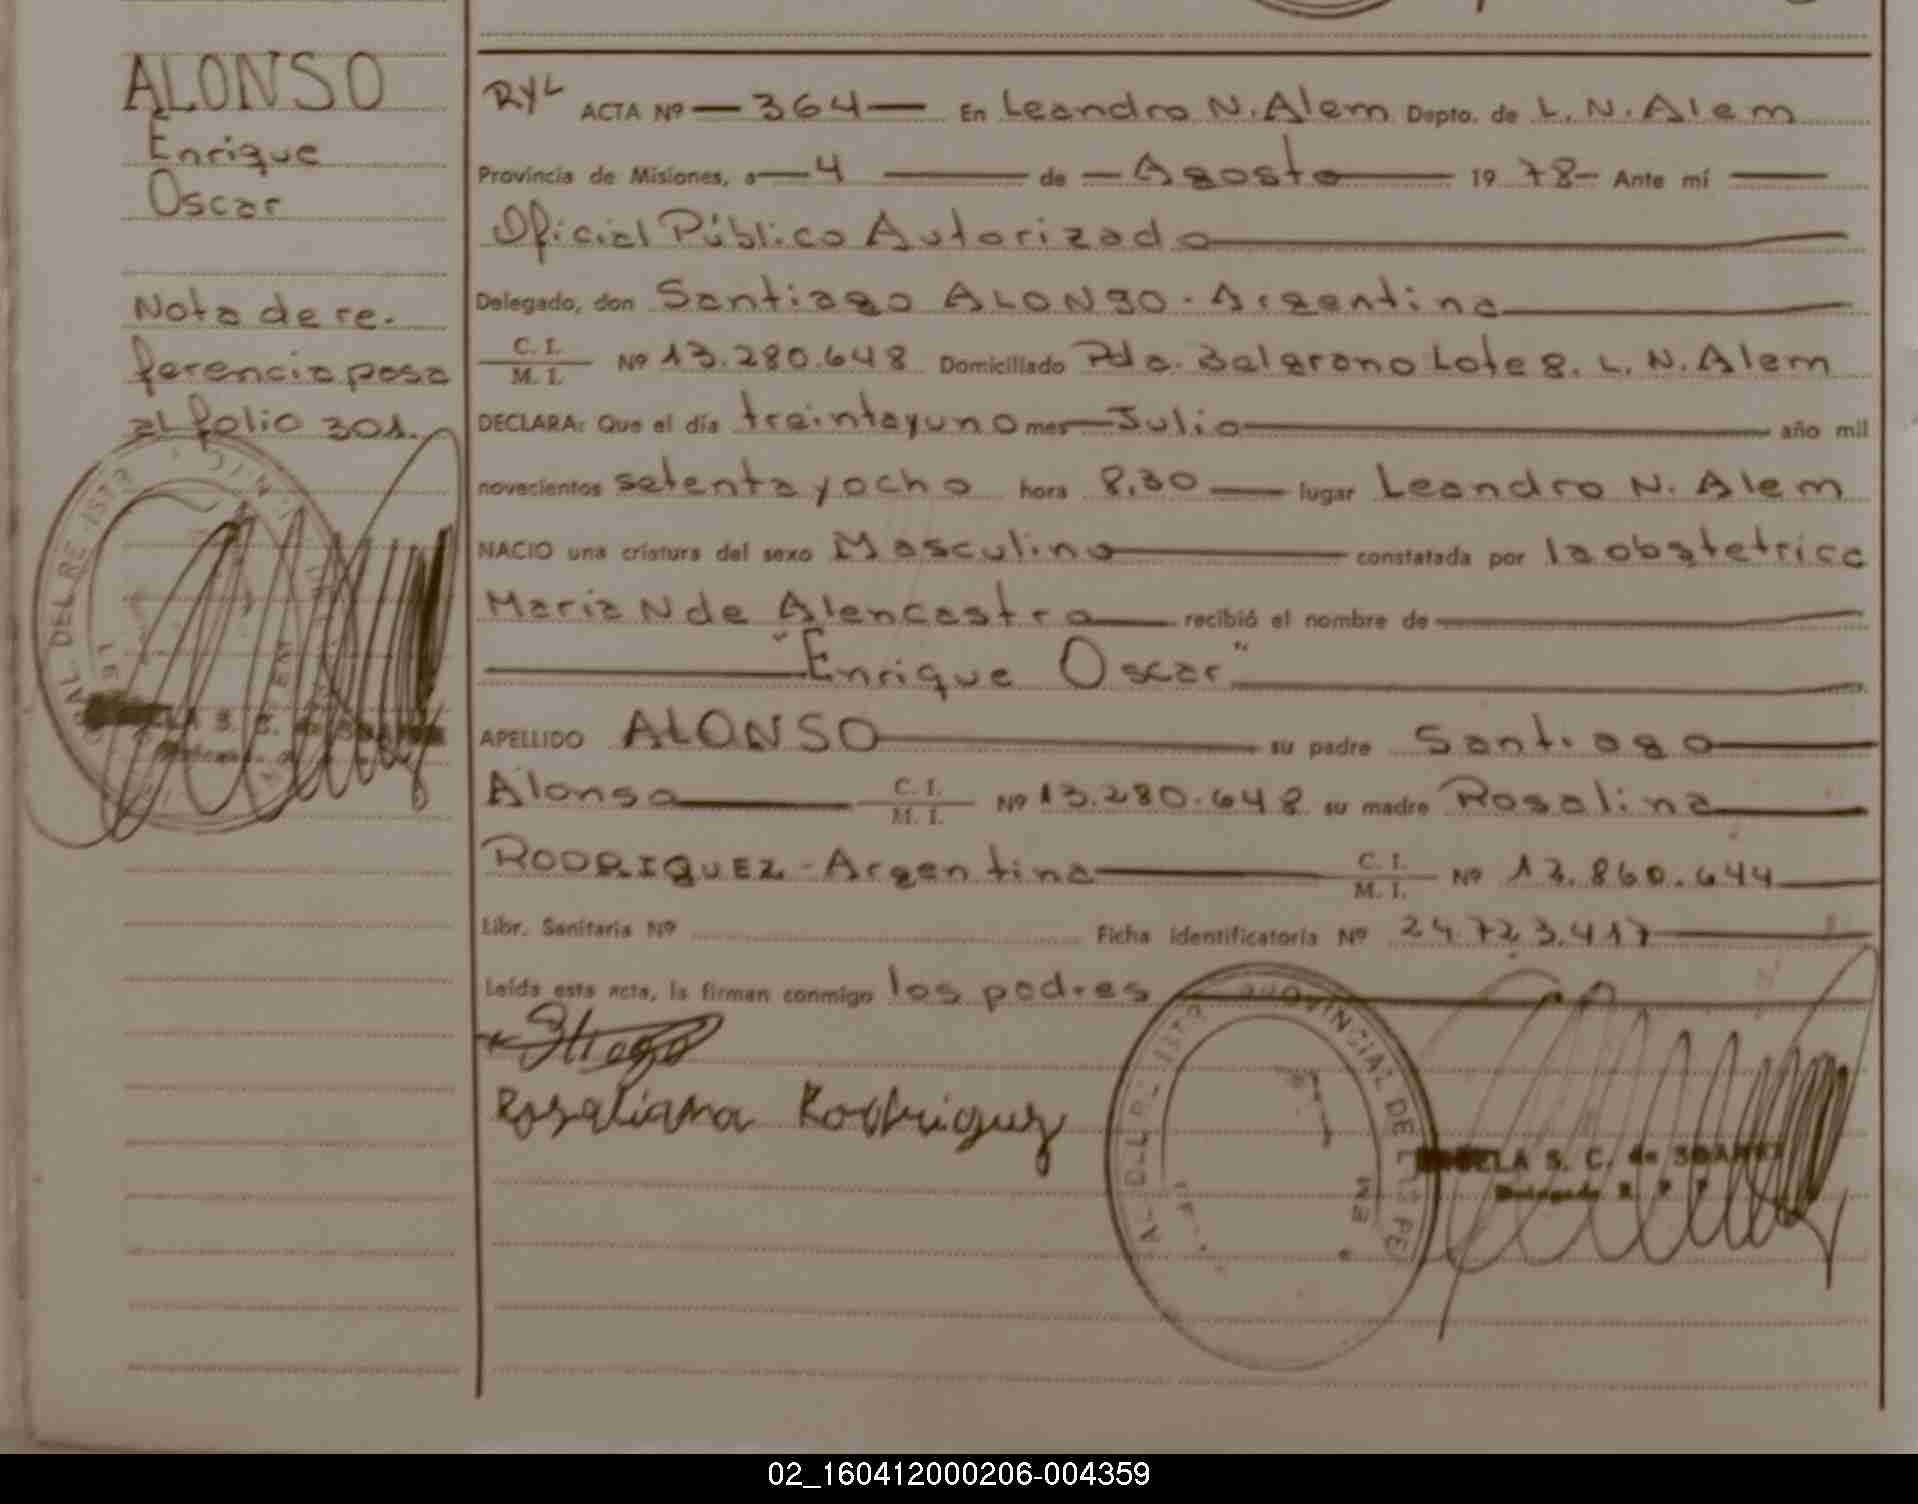 ALONSO
Enrique
Oscar
Nota de re.
ferencia pasa
al folio 301.
RyL ACTA Nº — 364 — En Leandro N. Alem Depto. de L. N. Alem
Provincia de Misiones, a — 4 — de — Agosto — 19 78 — Ante mí —
Oficial Público Autorizado
Delegado, don Santiago ALONSO - Argentino
C. I. / M. I. Nº 13.280.648 Domiciliado Pda. Belgrano Lote 8. L. N. Alem
DECLARA: Que el día treinta y uno mes — Julio — año mil
novecientos setenta y ocho hora 8,30 — lugar Leandro N. Alem
NACIO una criatura del sexo Masculino — constatada por la obstetrica
Maria N de Alencastro — recibió el nombre de —
"Enrique Oscar"
APELLIDO ALONSO — su padre Santiago
Alonso — C. I. / M. I. Nº 13.280.648 su madre Rosalina
RODRIGUEZ - Argentina — C. I. / M. I. Nº 13.860.644
Libr. Sanitaria Nº Ficha identificatoria Nº 24.723.417
Leída esta acta, la firman conmigo los padres
Stiago
Rosaliana Rodriguez
LA S. C. de
Delegada R. P. P.
02_160412000206-004359